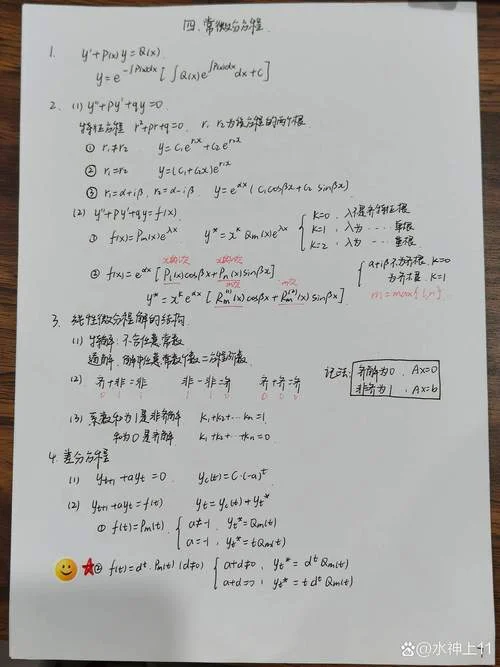 四. 常微分方程.
1. y'+P(x)y=Q(x)
y=e^{-∫P(x)dx}[∫Q(x)e^{∫P(x)dx}dx+C]
2. (1) y''+py'+qy=0
特征方程 r²+pr+q=0, r₁ r₂为该方程的两个根
① r₁≠r₂ y=C₁e^{r₁x}+C₂e^{r₂x}
② r₁=r₂ y=(C₁+C₂x)e^{r₁x}
③ r₁=α+iβ, r₂=α-iβ, y=e^{αx}(C₁cosβx+C₂sinβx)
(2) y''+py'+qy=f(x)
① f(x)=Pn(x)e^{λx} y*=x^k Qm(x)e^{λx} { k=0, λ不是特征根
k=1, λ为……单根
k=2, λ为……重根
② f(x)=e^{αx}[Pl(x)cosβx+Pn(x)sinβx] { α+iβ不为特根, k=0
为特根 k=1
y*=x^k e^{αx}[Rm⁽¹⁾(x)cosβx+Rm⁽²⁾(x)sinβx] m=max{l,n}
3. 线性微分方程解的结构
(1) 特解: 不含任意常数
通解: 解中任意常数个数=方程阶数
(2) 齐+非=非 非-非=齐 齐+齐=齐 记法: 齐解为0, Ax=0
0 1 1 1 1 0 0 0 0 非齐为1, Ax=b
(3) 系数和为1是非齐解 k₁+k₂+…kn=1
和为0是齐解 k₁+k₂+…+kn=0
4. 差分方程
(1) y_{t+1}+ay_t=0 y_c(t)=C·(-a)^t
(2) y_{t+1}+ay_t=f(t) y_t=y_c(t)+y_t*
① f(t)=Pm(t) { a≠-1, y_t*=Qm(t)
a=-1, y_t*=tQm(t)
② f(t)=d^t·Pm(t) (d≠0) { a+d≠0, y_t*=d^t Qm(t)
a+d=0, y_t*=t d^t Qm(t)
@水神上11